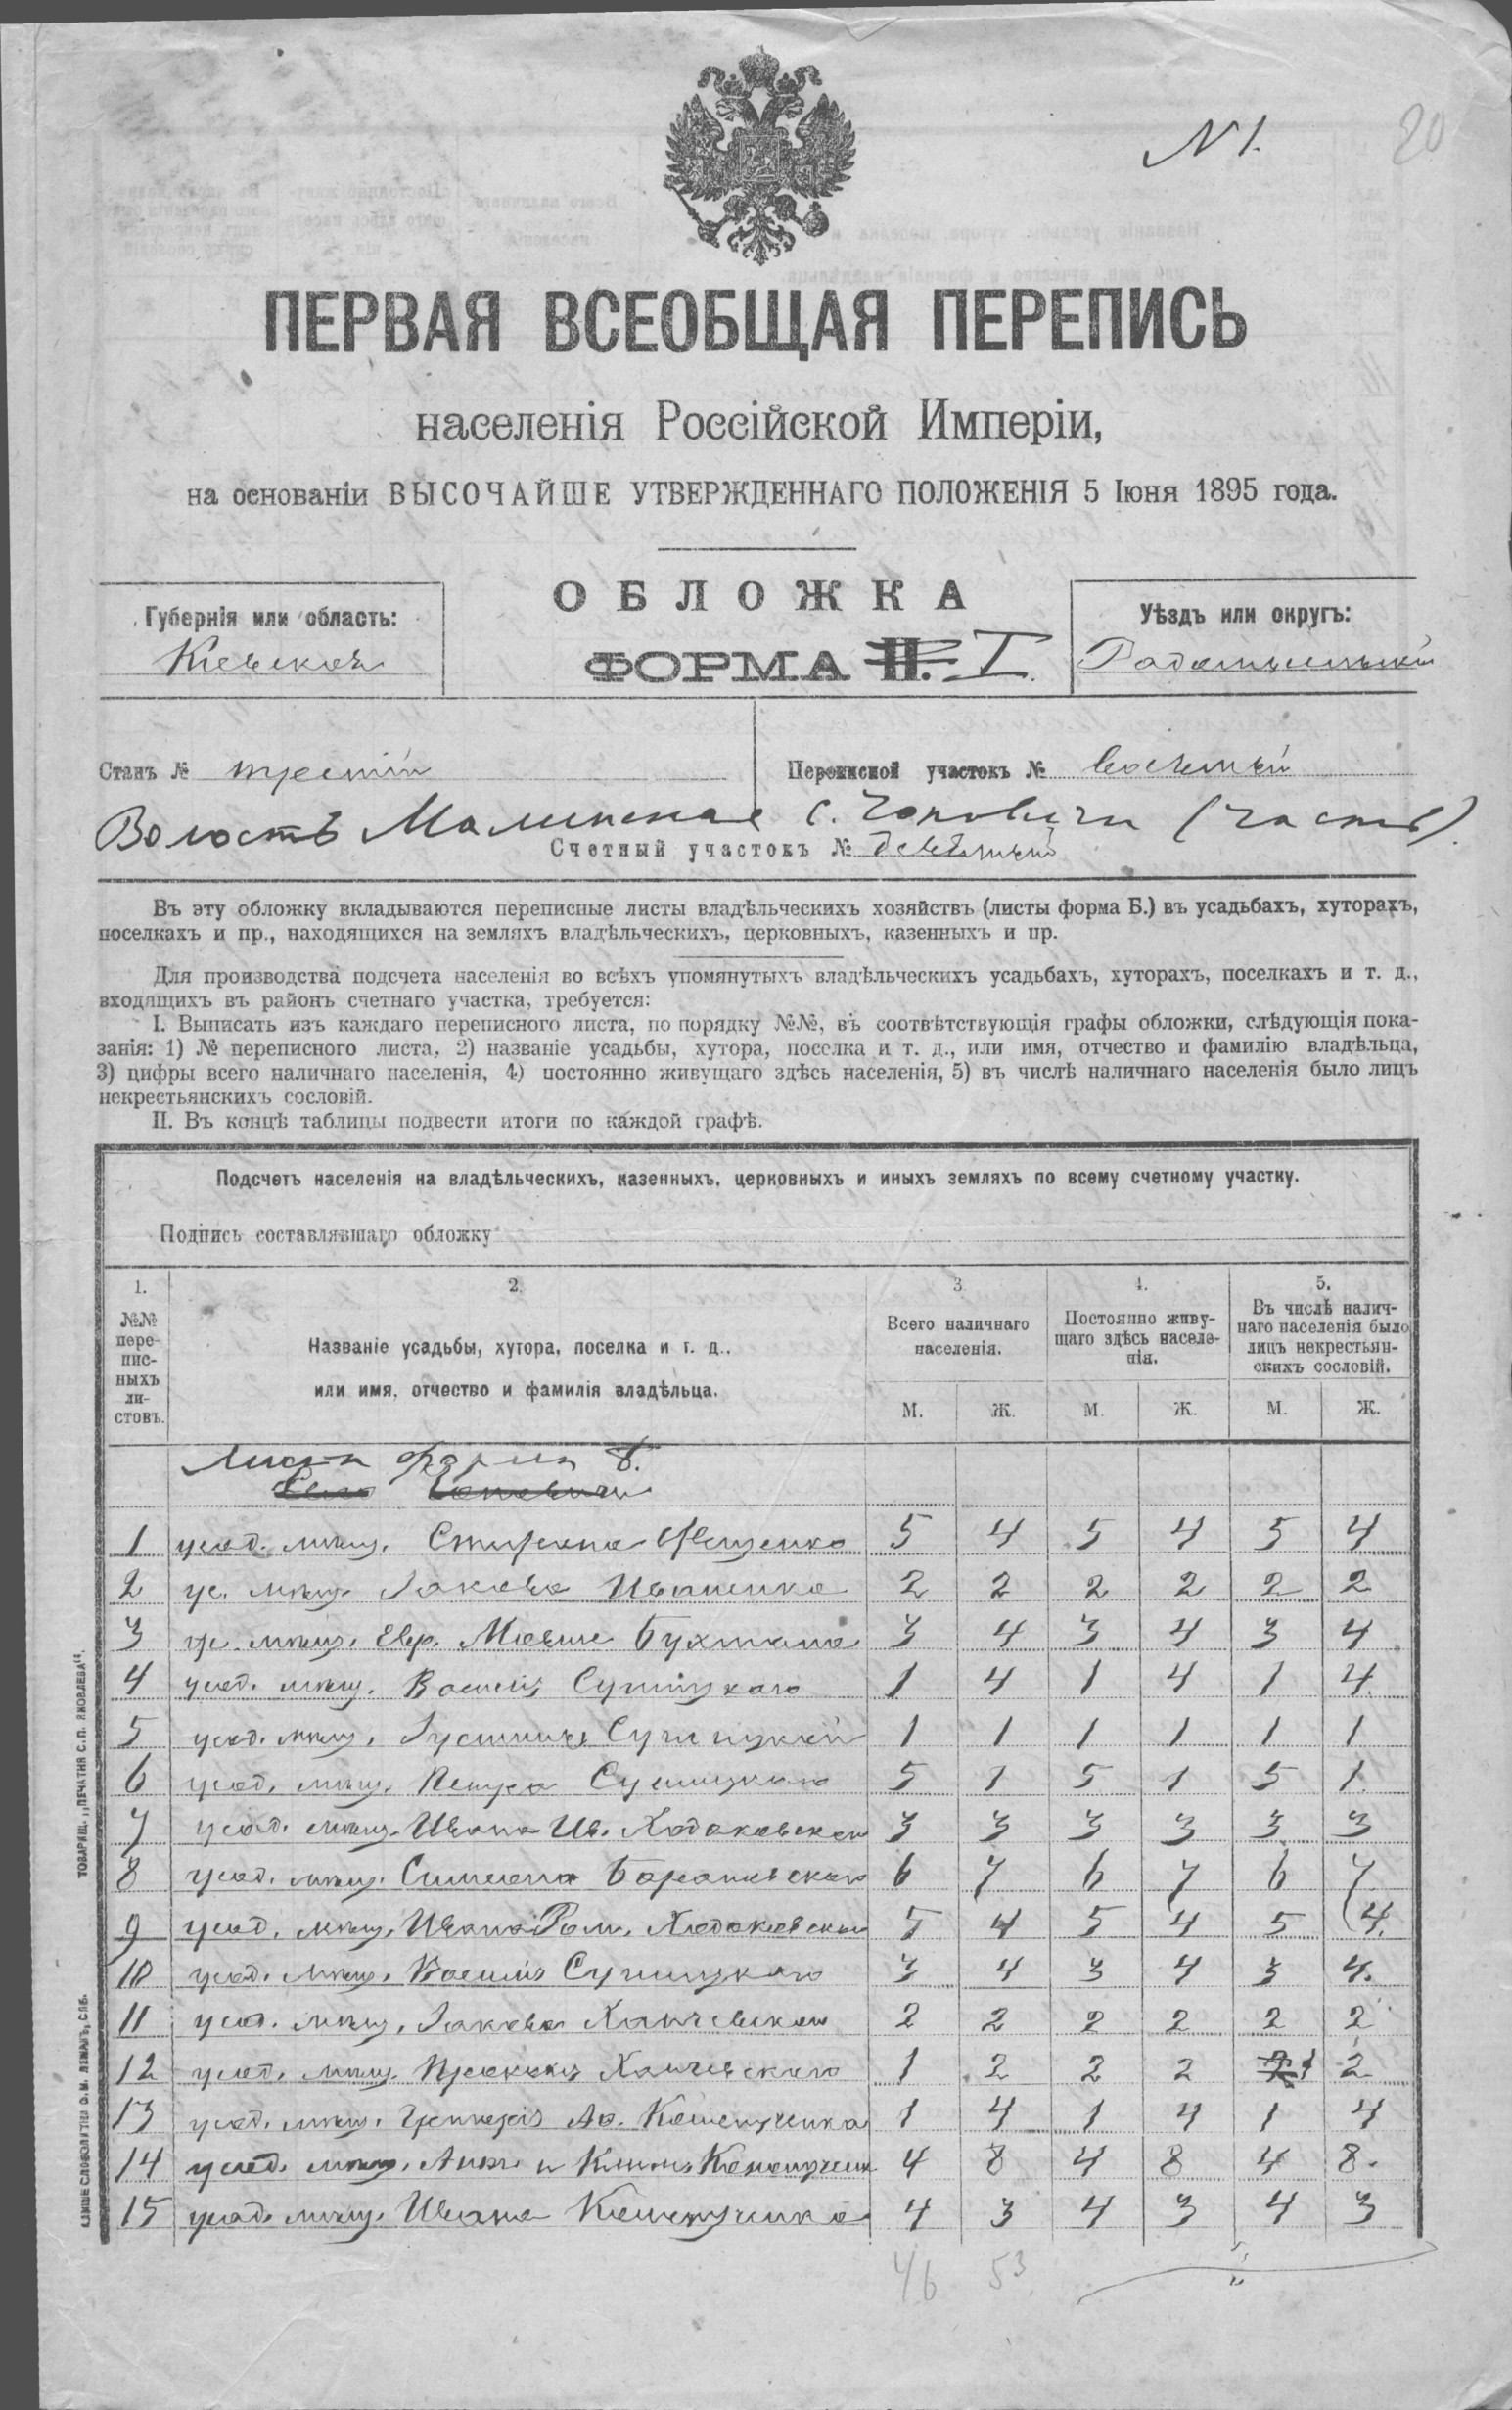 N 1.
20
ПЕРВАЯ ВСЕОБЩАЯ ПЕРЕПИСЬ
населенія Россійской Имперіи,
на основаніи ВЫСОЧАЙШЕ УТВЕРЖДЕННАГО ПОЛОЖЕНІЯ 5 Іюня 1895 года.
ОБЛОЖКА
Губернія или область:
Кіевская
ФОРМА II. I.
Уѣздъ или округъ:
Радомысльскій
Станъ № третій
Переписной участокъ № восьмый
Волость Малинская с. Чоповичи (часть).
Счетный участокъ № девятый
Въ эту обложку вкладываются переписные листы владѣльческихъ хозяйствъ (листы форма Б.) въ усадьбахъ, хуторахъ,
поселкахъ и пр., находящихся на земляхъ владѣльческихъ, церковныхъ, казенныхъ и пр.
Для производства подсчета населенія во всѣхъ упомянутыхъ владѣльческихъ усадьбахъ, хуторахъ, поселкахъ и т. д.,
входящихъ въ районъ счетнаго участка, требуется:
I. Выписать изъ каждаго переписного листа, по порядку №№, въ соотвѣтствующія графы обложки, слѣдующія пока-
занія: 1) № переписного листа, 2) названіе усадьбы, хутора, поселка и т. д., или имя, отчество и фамилію владѣльца,
3) цифры всего наличнаго населенія, 4) постоянно живущаго здѣсь населенія, 5) въ числѣ наличнаго населенія было лицъ
некрестьянскихъ сословій.
II. Въ концѣ таблицы подвести итоги по каждой графѣ.
Подсчетъ населенія на владѣльческихъ, казенныхъ, церковныхъ и иныхъ земляхъ по всему счетному участку.
Подпись составлявшаго обложку
1. 2. 3. 4. 5.
№№ пере-пис-ныхъ ли-стовъ.
Названіе усадьбы, хутора, поселка и т. д.,
или имя, отчество и фамилія владѣльца.
Всего наличнаго населенія.
Постоянно живу-щаго здѣсь населе-нія.
Въ числѣ налич-наго населенія было лицъ некрестьян-скихъ сословій.
М. Ж. М. Ж. М. Ж.
Листы формы Б.
Село Чоповичи
1 усад. мѣщ. 5 4 5 4 5 4
2 ус. мѣщ. Якова Иваненка 2 2 2 2 2 2
3 ус. мѣщ. Евр. Мовше Бухмана 3 4 3 4 3 4
4 усад. мѣщ. Василія Сущицкаго 1 4 1 4 1 4.
5 усад. мѣщ. Сущицкой 1 1 1 1 1 1
6 усад. мѣщ. Петра Сущицкаго 5 1 5 1 5 1.
7 усад. мѣщ. Ивана Ив. Ходаковскаго 3 3 3 3 3 3
8 усад. мѣщ. Симеона Барановскаго 6 7 6 7 6 7
9 усад. мѣщ. Ивана Ром. Ходаковскаго 5 4 5 4 5 4.
10 усад. мѣщ. Василія Сущицкаго 3 4 3 4 3 4.
11 усад. мѣщ. Якова Ханчевскаго 2 2 2 2 2 2
12 усад. мѣщ. Прокопія Ханчевскаго 1 2 2 2 1 2
13 усад. мѣщ. 1 4 1 4 1 4
14 усад. мѣщ. 4 8 4 8 4 8.
15 усад. мѣщ. Ивана 4 3 4 3 4 3
46 53
ТОВАРИЩ. „ПЕЧАТНЯ С. П. ЯКОВЛЕВА“.
КЛИШЕ СЛОВОЛИТНИ О. И. ЛЕМАНЪ, СПБ.